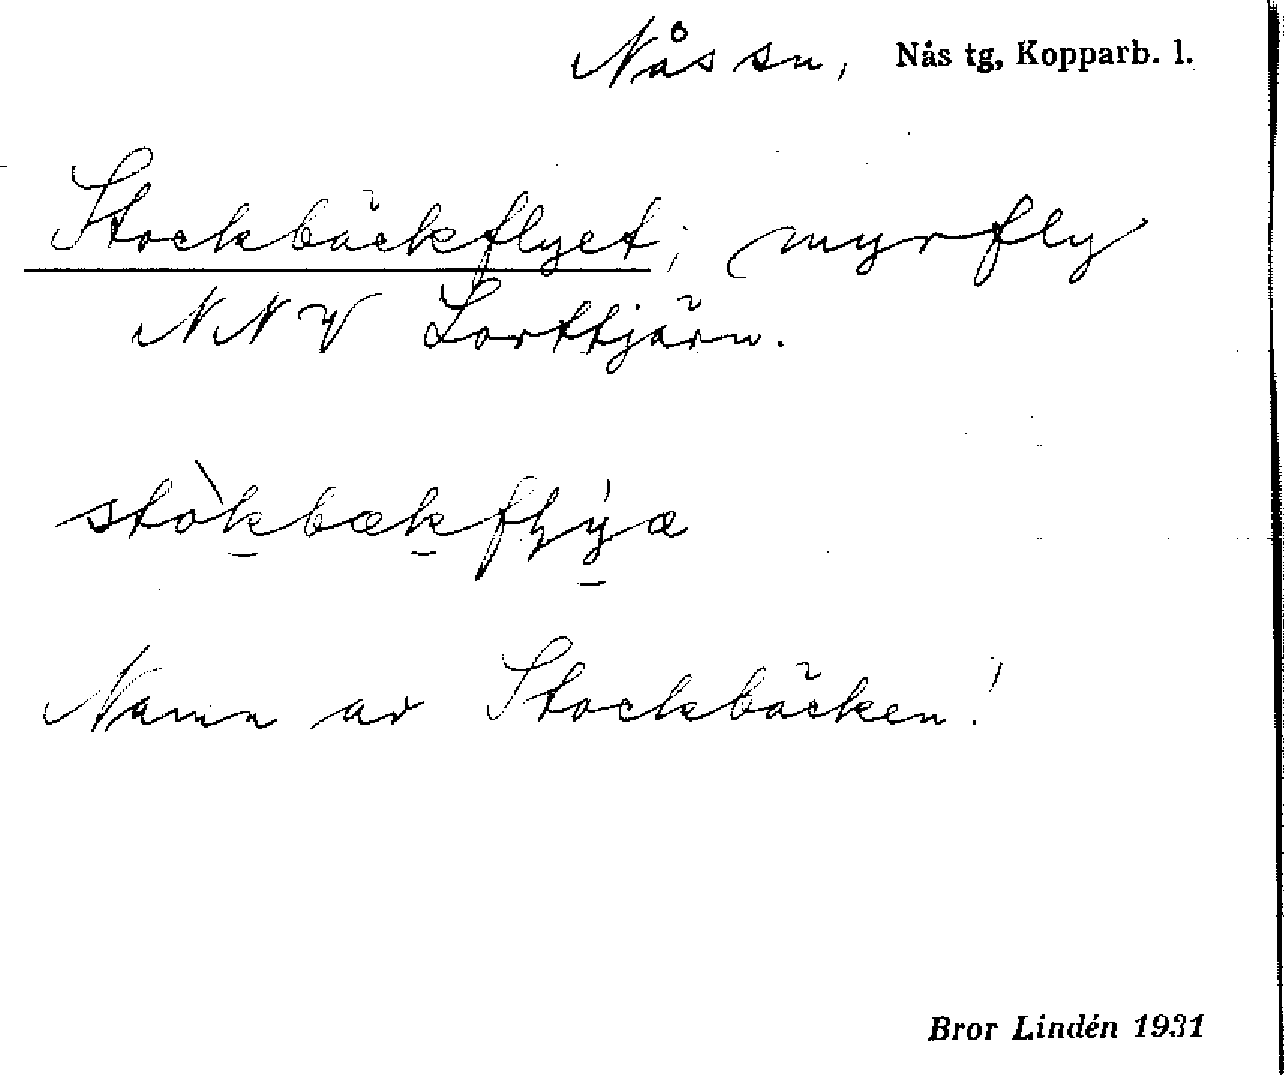 Nås sn, Nås tg, Kopparb. l.
Stockbäckflyet; myrfly
NNV Lorttjärn.
stòkbækflýæ
Namn av Stockbäcken!
Bror Lindén 1931